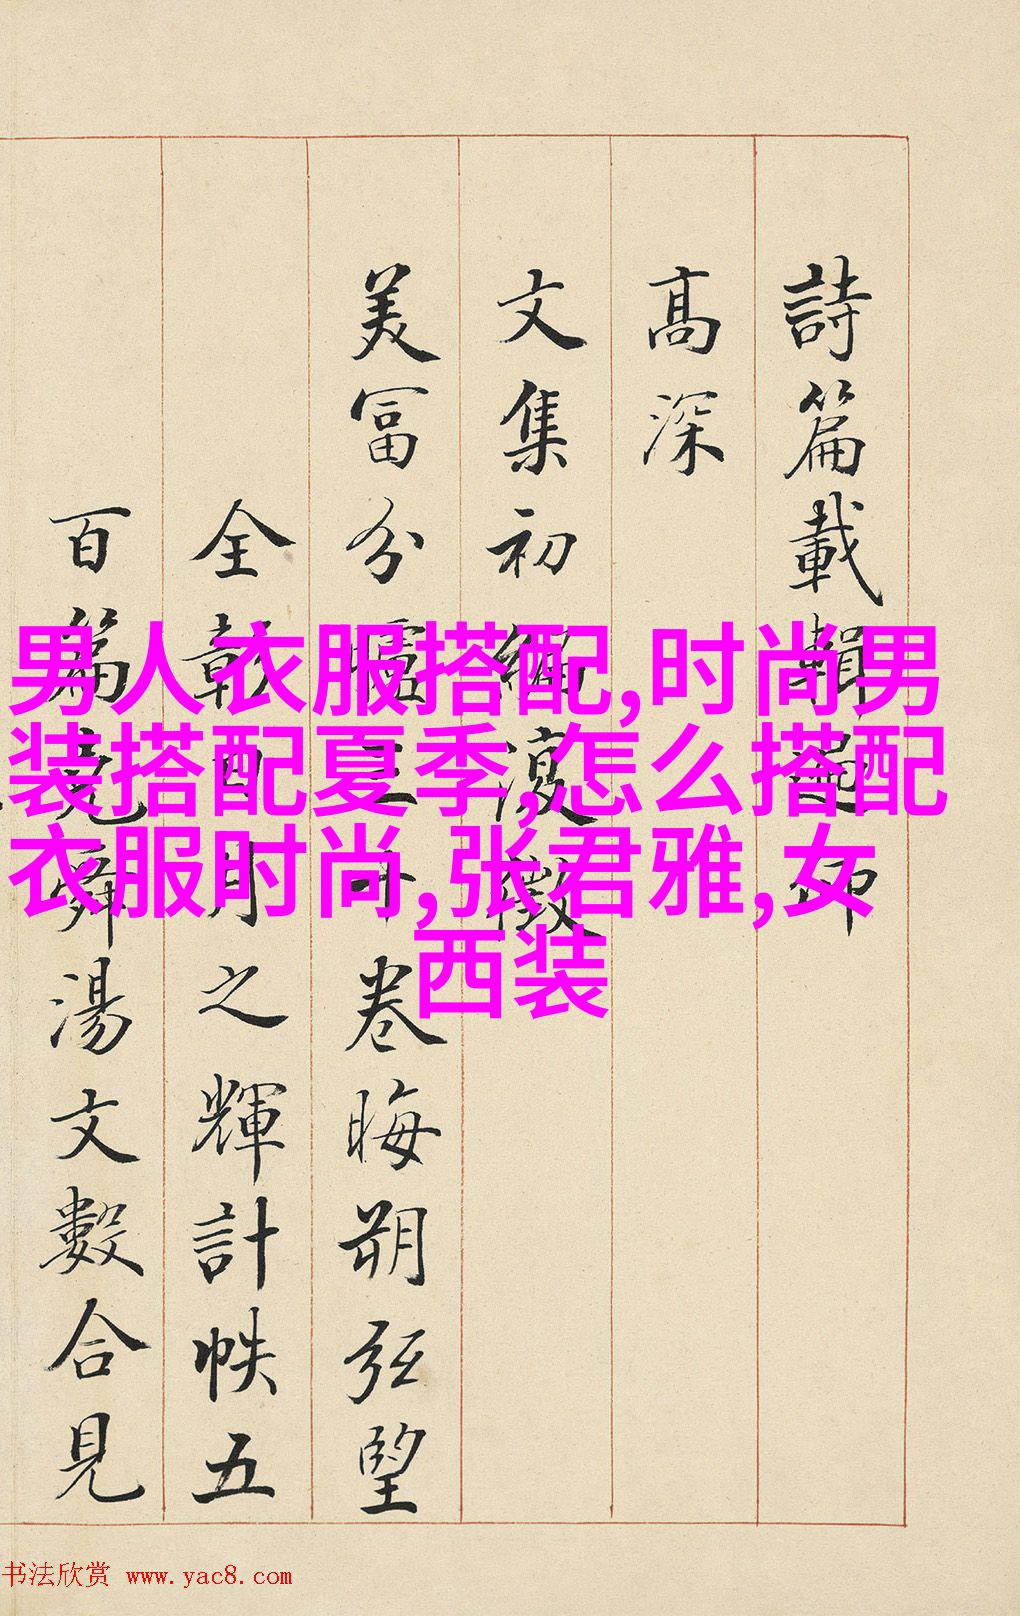 詩篇載輯
髙深
文集初
美富分臚三十卷晦朔弦望
全彰日月之輝計帙五
百篇堯舜湯文數合見
男人衣服搭配,时尚男
装搭配夏季,怎么搭配
衣服时尚,张君雅,女
西装
书法欣赏 www.yac8.com